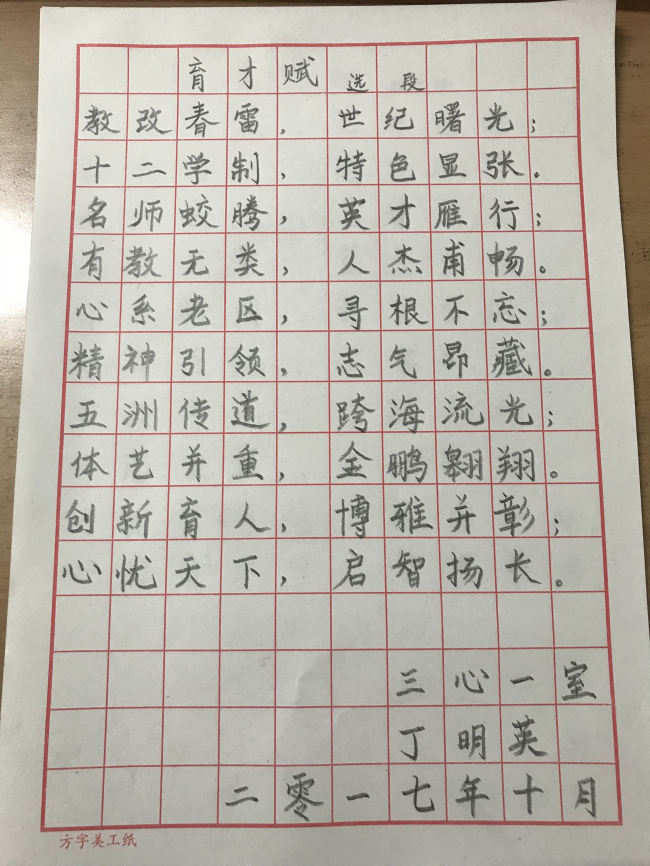 育才赋 选段
教改春雷，世纪曙光；
十二学制，特色显张。
名师蛟腾，英才雁行；
有教无类，人杰甫畅。
心系老区，寻根不忘；
精神引领，志气昂藏。
五洲传道，跨海流光；
体艺并重，全鹏翱翔。
创新育人，博雅并彰；
心忧天下，启智扬长。
三心一室
丁明英
二零一七年十月
方字美工纸